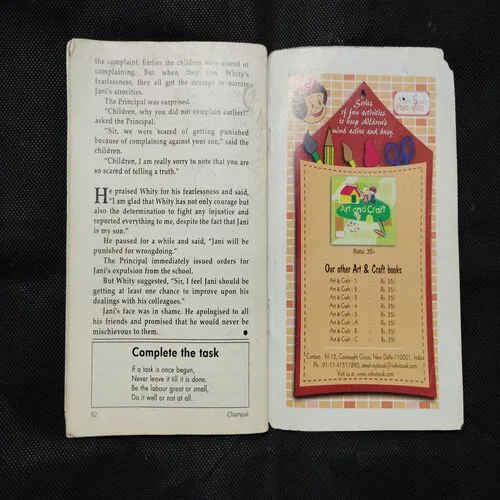 the complaint. Earlier the children were scared of
complaining. But when they saw Whity's
fearlessness, they all got the courage to narrate
Jani's atrocities.
The Principal was surprised.
"Children, why you did not complain earlier?"
asked the Principal.
"Sir, we were scared of getting punished
because of complaining against your son," said the
children.
"Children, I am really sorry to note that you are
so scared of telling a truth."
He praised Whity for his fearlessness and said,
"I am glad that Whity has not only courage but
also the determination to fight any injustice and
reported everything to me, despite the fact that Jani
is my son."
He paused for a while and said, "Jani will be
punished for wrongdoing."
The Principal immediately issued orders for
Jani's expulsion from the school.
But Whity suggested, "Sir, I feel Jani should be
getting at least one chance to improve upon his
dealings with his colleagues."
Jani's face was in shame. He apologised to all
his friends and promised that he would never be
mischievous to them.
Complete the task
If a task is once begun,
Never leave it till it is done.
Be the labour great or small,
Do it well or not at all.
62
Champak
Series
of fun activities
to keep children's
mind active and busy.
Art and Craft
Rate: 35/-
Our other Art & Craft books
Art & Craft - 1 - Rs. 35/-
Art & Craft - 2 - Rs. 35/-
Art & Craft - 3 - Rs. 35/-
Art & Craft - 4 - Rs. 35/-
Art & Craft - 5 - Rs. 35/-
Art & Craft - A - Rs. 35/-
Art & Craft - B - Rs. 35/-
Art & Craft - C - Rs. 35/-
Contact: M-12, Connaught Circus, New Delhi-110001. India
Ph. 91-11-41517890, email:mybook@vishvbook.com
Visit us at: www.vishvbook.com